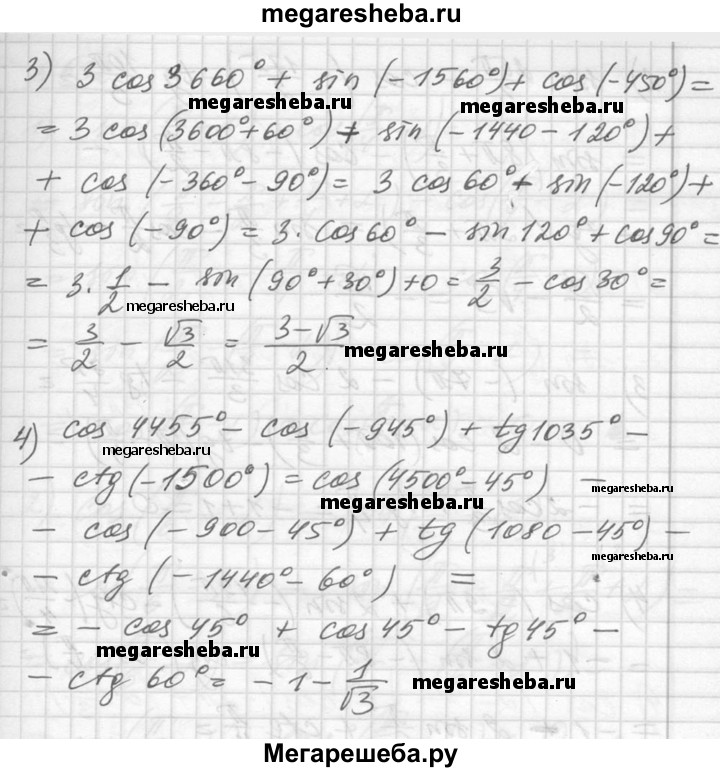 megaresheba.ru
3) 3 cos 3660° + sin (-1560°) + cos (-450°) =
megaresheba.ru megaresheba.ru
= 3 cos (3600° + 60°) + sin (-1440 - 120°) +
+ cos (-360° - 90°) = 3 cos 60° + sin (-120°) +
+ cos (-90°) = 3 · cos 60° - sin 120° + cos 90° =
= 3 · 1/2 - sin (90° + 30°) + 0 = 3/2 - cos 30° =
megaresheba.ru
= 3/2 - √3/2 = (3-√3)/2
megaresheba.ru
4) cos 4455° - cos (-945°) + tg 1035° -
megaresheba.ru
- ctg (-1500°) = cos (4500° - 45°) -
megaresheba.ru megaresheba.ru
- cos (-900 - 45°) + tg (1080 - 45°) -
megaresheba.ru
- ctg (-1440° - 60°) =
= - cos 45° + cos 45° - tg 45° -
megaresheba.ru
- ctg 60° = -1 - 1/√3
megaresheba.ru
Мегарешеба.ру